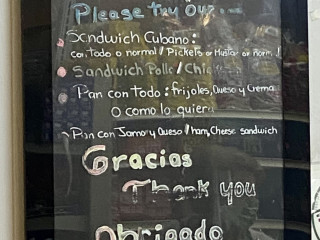 Please try Our...
Sandwich Cubano:
con todo o normal / Pickels or Mustar or norm!
Sandwich Pollo / Chic
Pan con todo: frijoles, Queso y Crema
O como lo quiera
Pan con Jamo y Queso / ham, Cheese sandwich
Gracias
Thank you
Obrigado